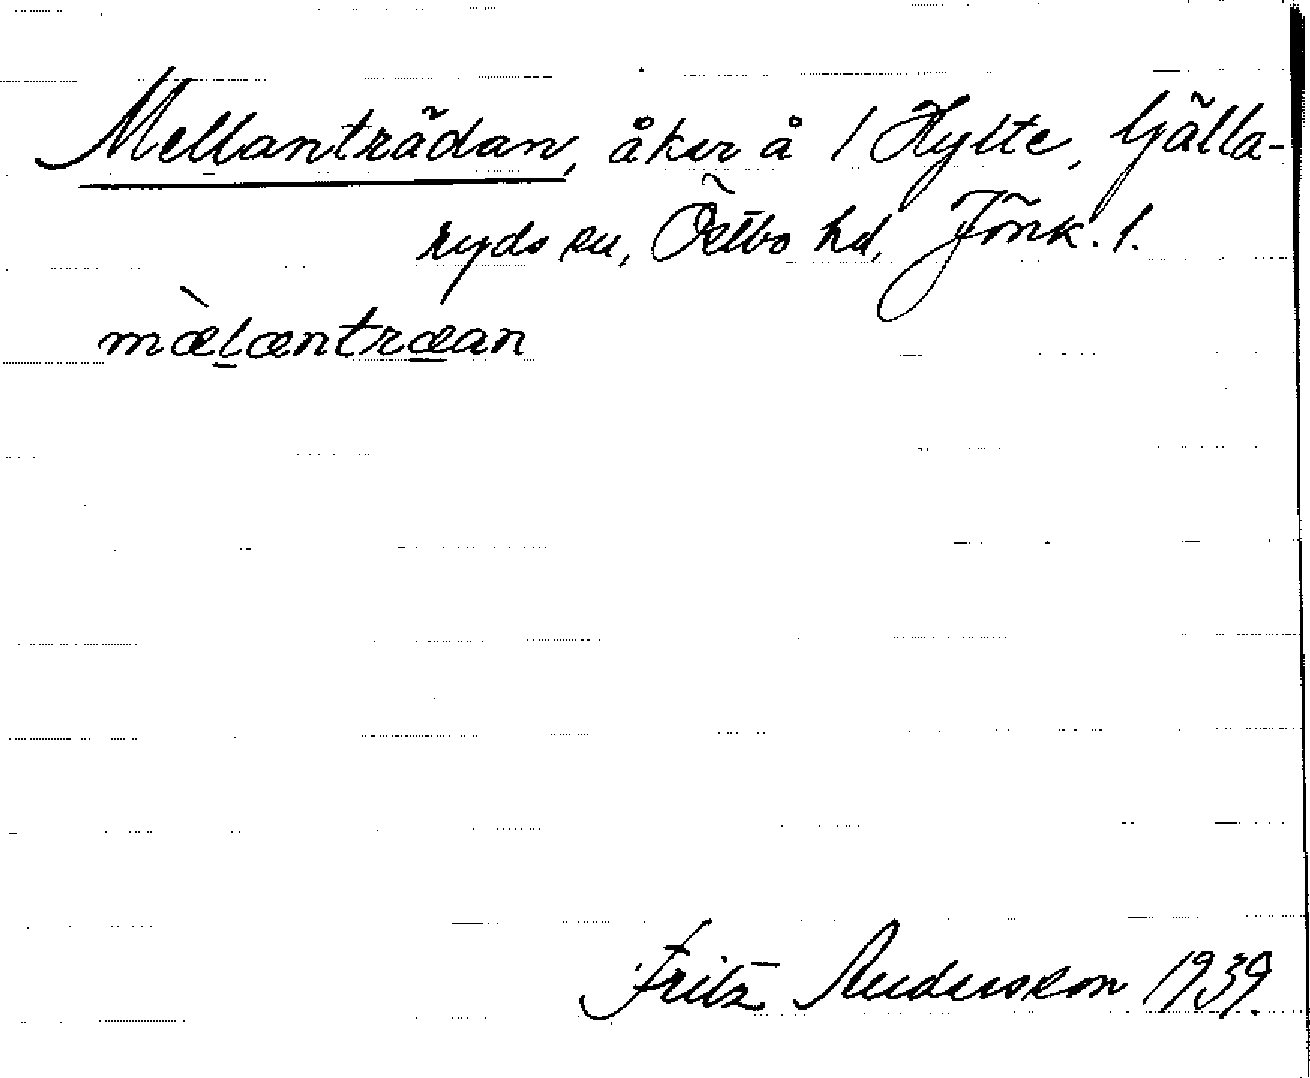 Mellanträdan, åker å 1 Hylte, Gälla-
ryds sn, Östbo hd, Jönk. l.
mæ̀læntræan
Fritz Andersson 1939.